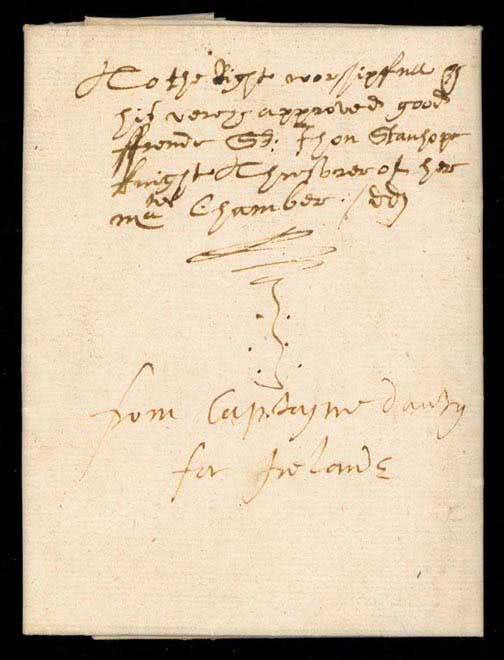 To the Right worshipfull &
his verey approved good
ffrende Sr: Jhon Stanhope
knight Thresorer of her
matie Chamber /
from Captayne dautry
for Irelande